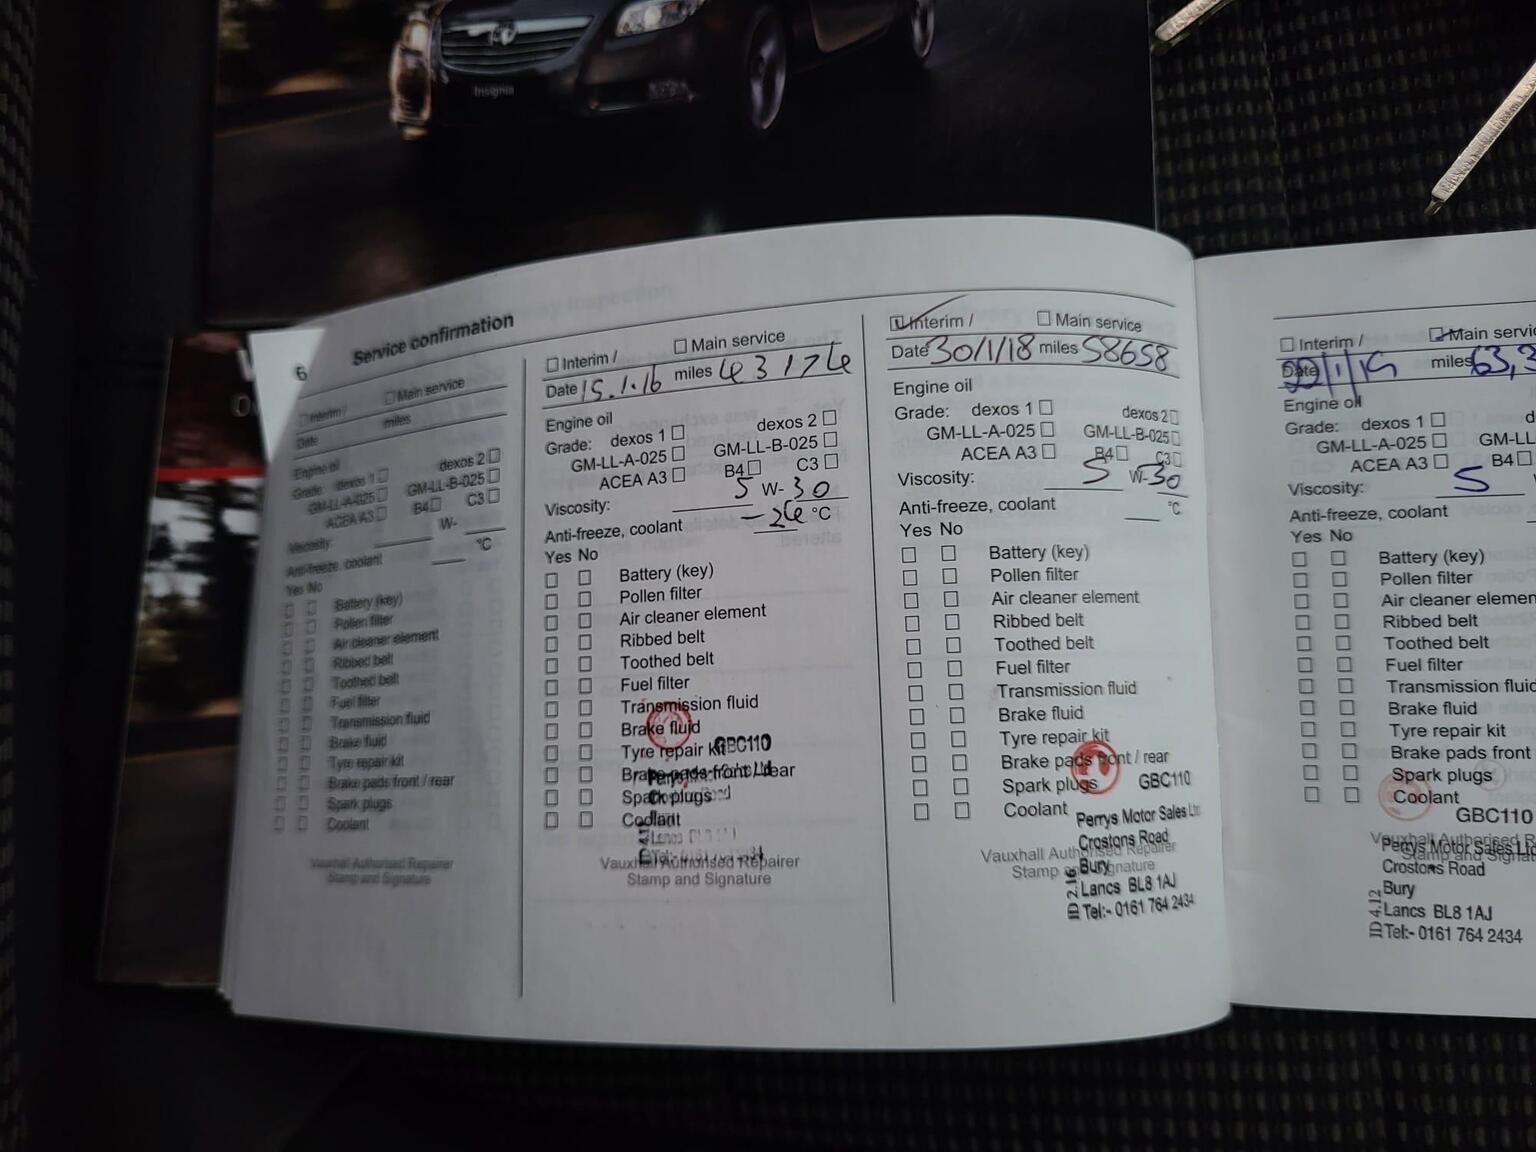 Insignia
6 Service confirmation
Interim / Main service
Date miles
Engine oil
Grade: dexos 1 dexos 2
GM-LL-A-025 GM-LL-B-025
ACEA A3 B4 C3
Viscosity: W-
Anti-freeze, coolant °C
Yes No
Battery (key)
Pollen filter
Air cleaner element
Ribbed belt
Toothed belt
Fuel filter
Transmission fluid
Brake fluid
Tyre repair kit
Brake pads front / rear
Spark plugs
Coolant
Vauxhall Authorised Repairer
Stamp and Signature
Interim / Main service
Date 15.1.16 miles 43174
Engine oil
Grade: dexos 1 dexos 2
GM-LL-A-025 GM-LL-B-025
ACEA A3 B4 C3
Viscosity: 5 W-30
Anti-freeze, coolant -26 °C
Yes No
Battery (key)
Pollen filter
Air cleaner element
Ribbed belt
Toothed belt
Fuel filter
Transmission fluid
Brake fluid
Tyre repair kit GBC110
Brake pads front / rear
Spark plugs
Coolant
Vauxhall Authorised Repairer
Stamp and Signature
Interim / Main service
Date 30/1/18 miles 58658
Engine oil
Grade: dexos 1 dexos 2
GM-LL-A-025 GM-LL-B-025
ACEA A3 B4 C3
Viscosity: 5 W-30
Anti-freeze, coolant °C
Yes No
Battery (key)
Pollen filter
Air cleaner element
Ribbed belt
Toothed belt
Fuel filter
Transmission fluid
Brake fluid
Tyre repair kit
Brake pads front / rear
Spark plugs GBC110
Coolant
Perrys Motor Sales Ltd
Crostons Road
Vauxhall Authorised Repairer
Stamp and Signature
Bury
Lancs BL8 1AJ
Tel:- 0161 764 2434
Interim / Main service
Date 22/1/19 miles 63,3
Engine oil
Grade: dexos 1
GM-LL-A-025 GM-LL
ACEA A3 B4
Viscosity: 5
Anti-freeze, coolant
Yes No
Battery (key)
Pollen filter
Air cleaner elemen
Ribbed belt
Toothed belt
Fuel filter
Transmission fluid
Brake fluid
Tyre repair kit
Brake pads front
Spark plugs
Coolant
GBC110
Vauxhall Authorised R
Stamp and Signat
Perrys Motor Sales Ltd
Crostons Road
Bury
Lancs BL8 1AJ
Tel:- 0161 764 2434